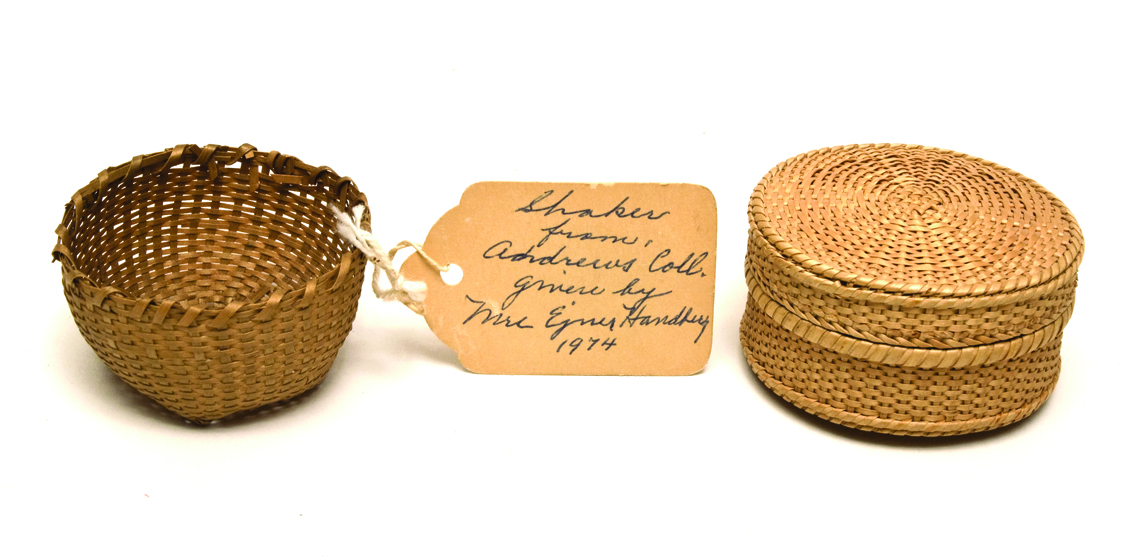 Shaker
from,
Andrews Coll.
given by
Mrs Ejner Handberg
1974